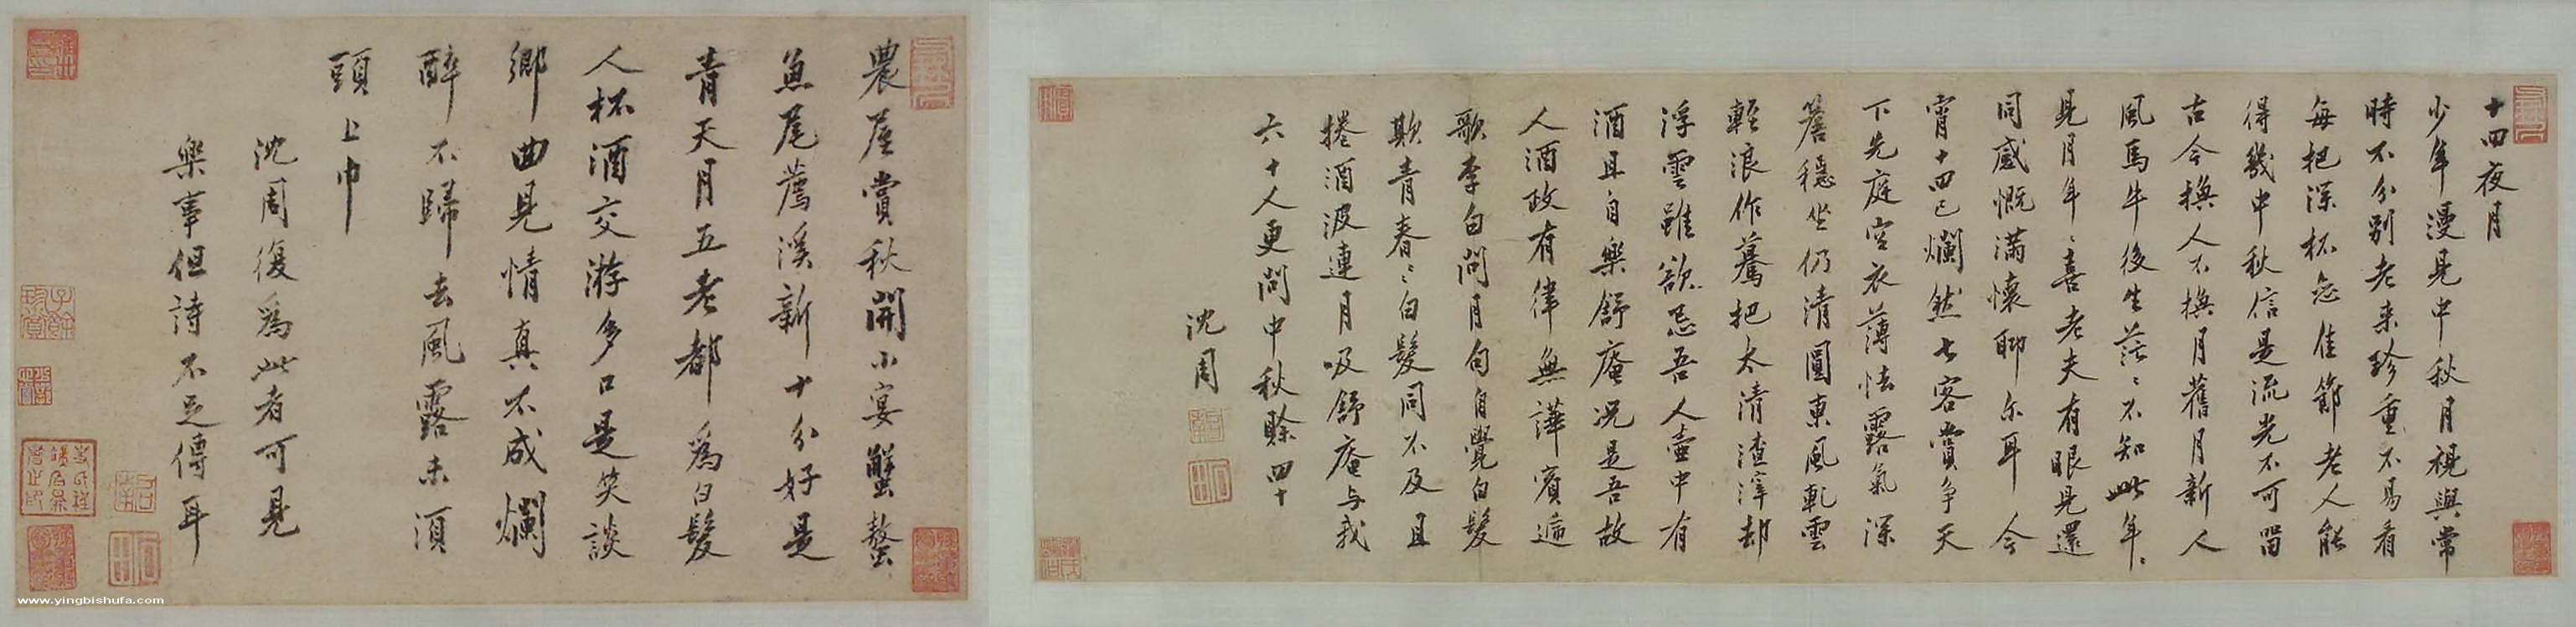 十四夜月
少年漫見中秋月視與常
時不分別老来珍重不易看
每把深杯怨佳節老人能
得幾中秋信是流光不可留
古今換人不換月舊月新人
風馬牛後生茫〻不知此年〻
見月年〻喜老夫有眼見還
同感慨滿懷聊尓耳今
宵十四已爛然七客賞争天
下先庭空衣薄怯露氣深
簷穩坐仍清圓東風軋雲
輕浪作驀把太清渣滓却
浮雲雖欲忌吾人壷中有
酒且自樂舒庵况是吾故
人酒政有律無譁賓遍
歌李白問月句自覺白髮
欺青春〻白髮同不及且
捲酒波連月吸舒庵与我
六十人更問中秋賒四十
沈周
農屋賞秋開小宴蟹螯
魚尾薦溪新十分好是
青天月五老都為白髮
人杯酒交游多口是笑談
鄉曲見情真不成爛
醉不歸去風露未湏
頭上巾
沈周復為此者可見
樂事但詩不足傳耳
www.yingbishufa.com